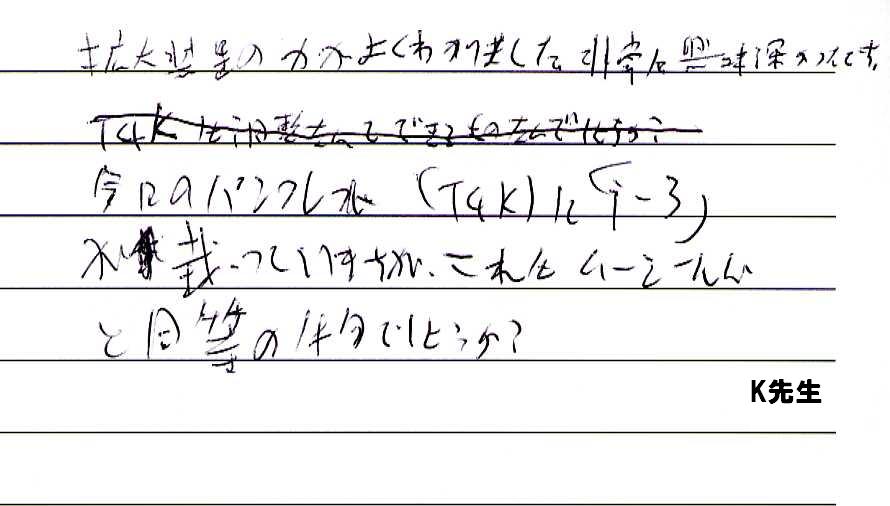 拡大装置の力がよくわかりました非常に興味深かったです。
T4Kは調整なんてできるものなんでしょうか?
今日のパンフレット(T4K)に「i-3」
が載っていますが、これは ムーシールド
と同等の作用でしょうか?
K先生